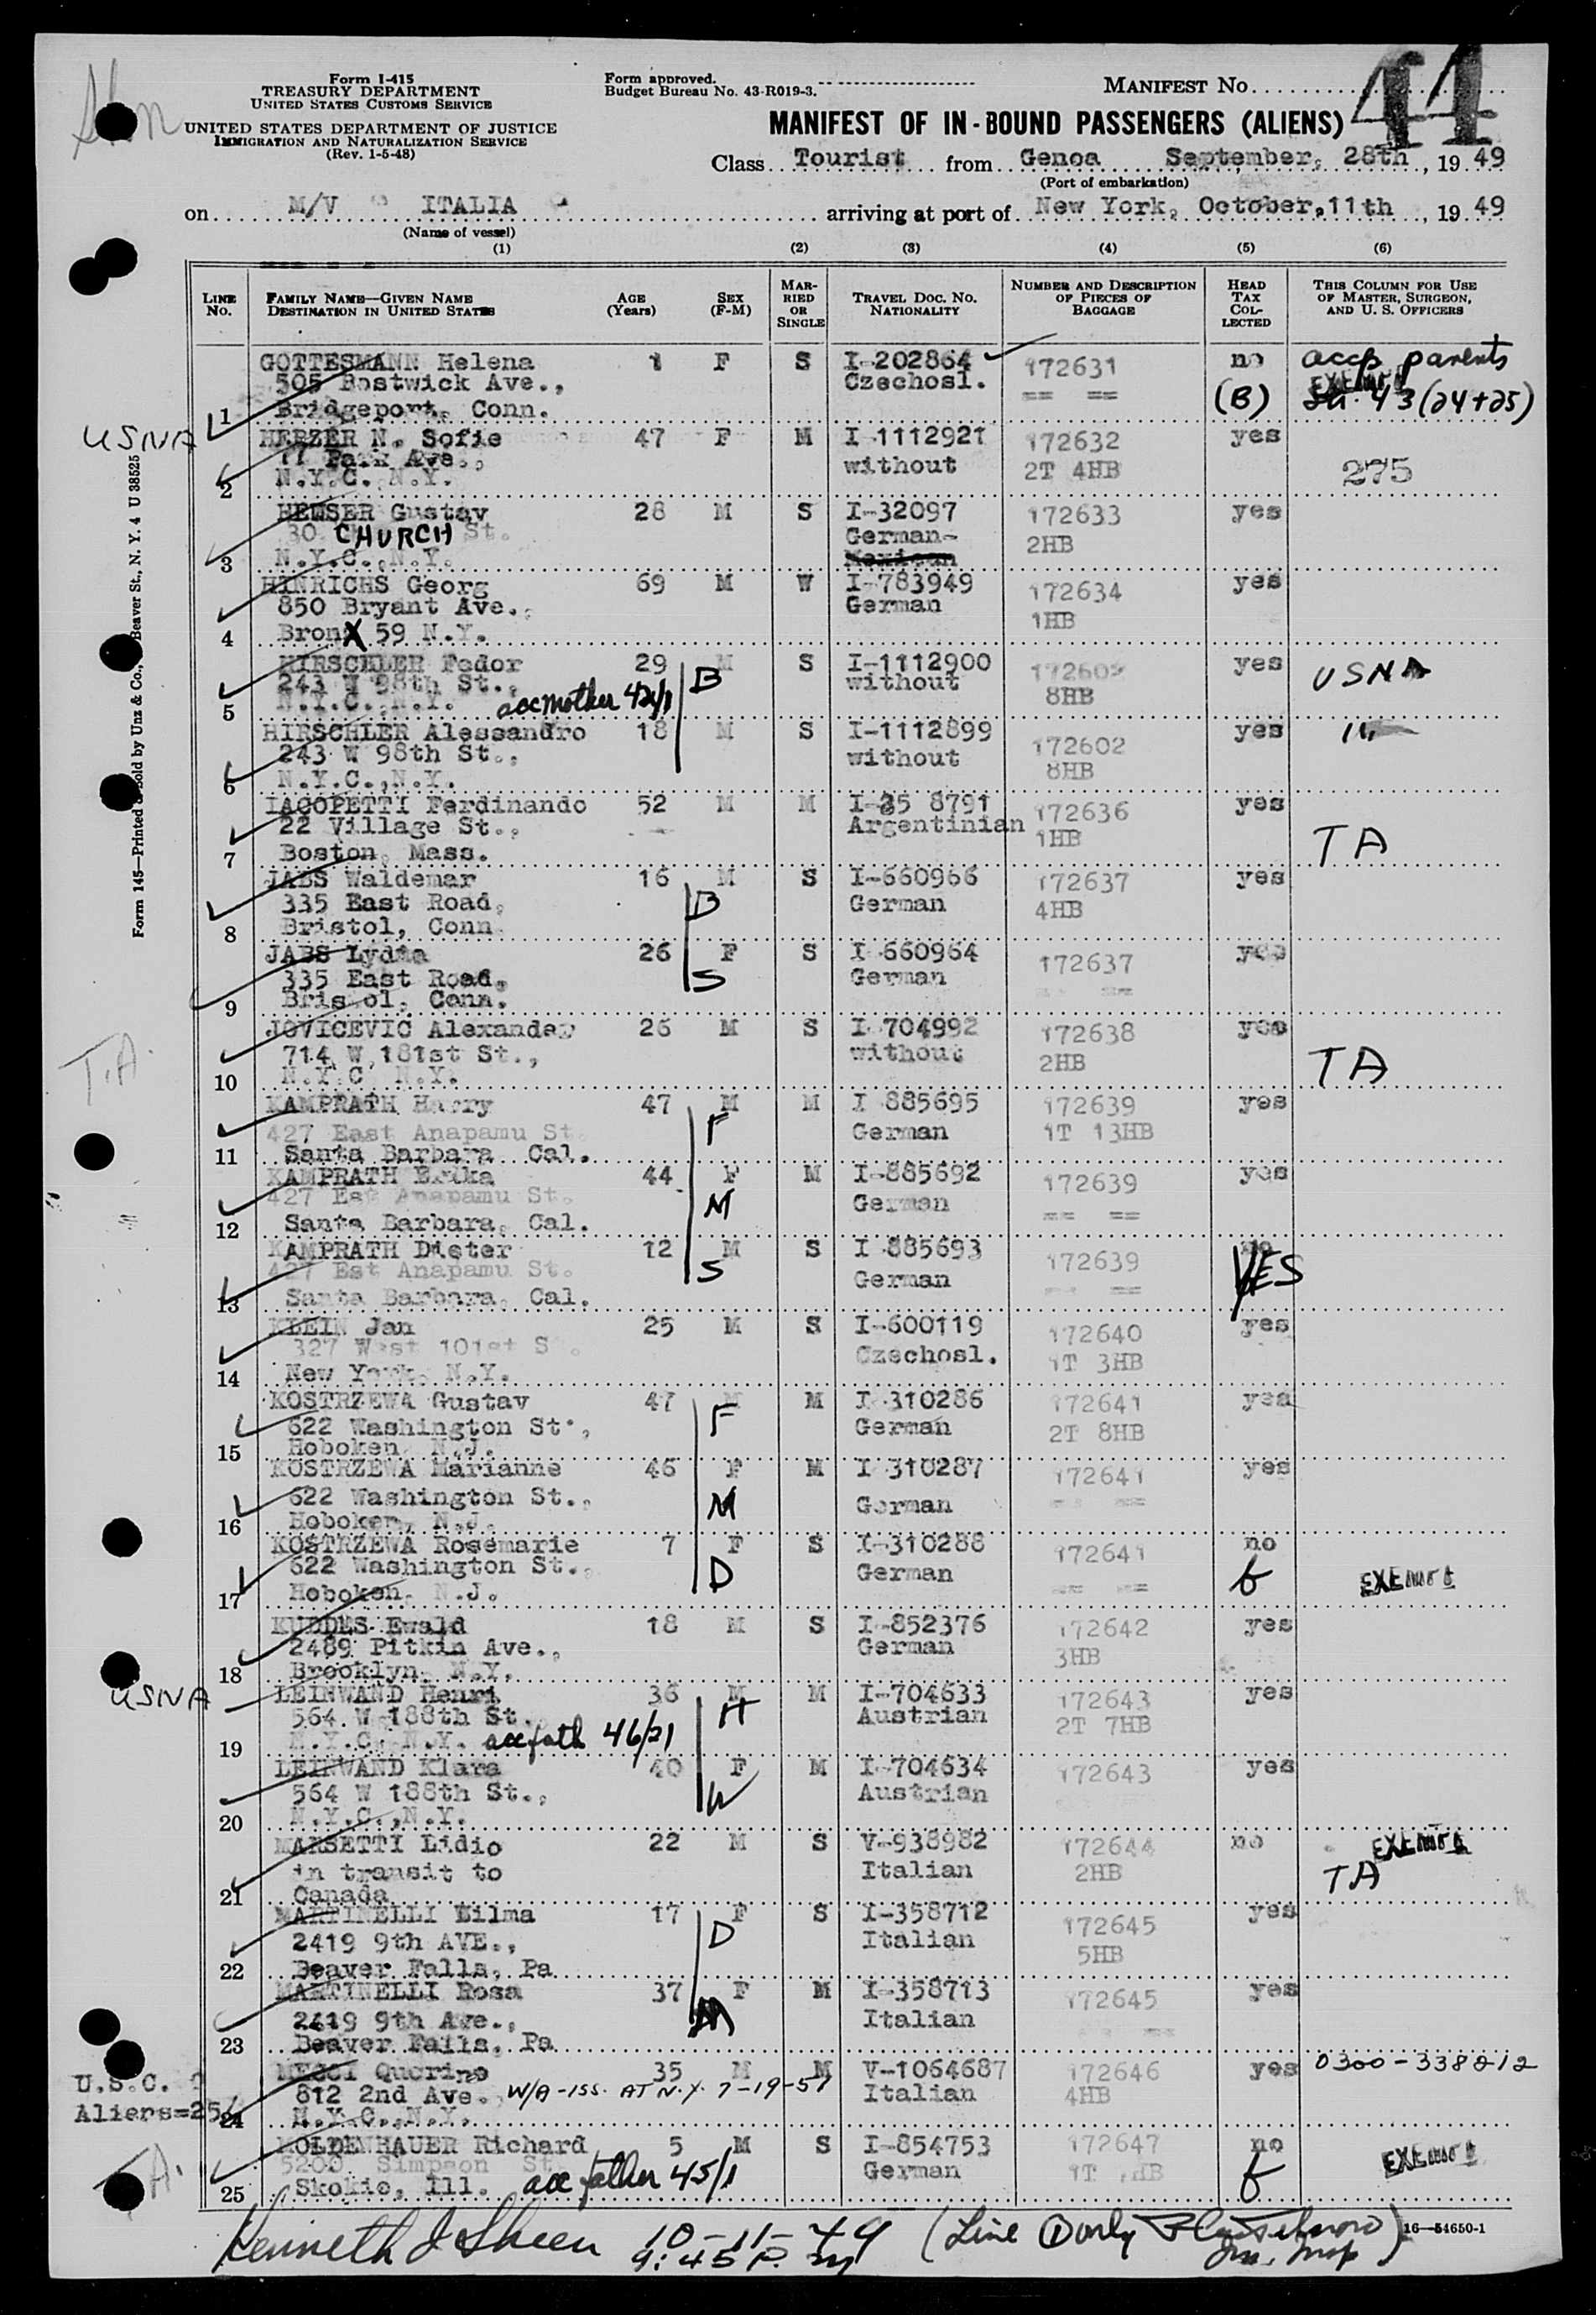 44
Form I-415
TREASURY DEPARTMENT
UNITED STATES CUSTOMS SERVICE
UNITED STATES DEPARTMENT OF JUSTICE
IMMIGRATION AND NATURALIZATION SERVICE
(Rev. 1-5-48)
Form approved.
Budget Bureau No. 43-R019-3.
MANIFEST No.
MANIFEST OF IN-BOUND PASSENGERS (ALIENS)
Class Tourist from Genoa September, 28th, 19 49
(Port of embarkation)
on M/V ITALIA arriving at port of New York, October, 11th, 19 49
(Name of vessel)
(1) (2) (3) (4) (5) (6)
LINE No. FAMILY NAME—GIVEN NAME DESTINATION IN UNITED STATES AGE (Years) SEX (F-M) MARRIED OR SINGLE TRAVEL DOC. No. NATIONALITY NUMBER AND DESCRIPTION OF PIECES OF BAGGAGE HEAD TAX COLLECTED THIS COLUMN FOR USE OF MASTER, SURGEON, AND U. S. OFFICERS
GOTTESMANN Helena 1 F S I-202864 172631 no acc parents
505 Bostwick Ave., Czechosl. == == EXEMPT
1 Bridgeport, Conn. (B) 43 (24+25)
USNA
HERZER N. Sofie 47 F M I 1112921 172632 yes
77 Park Ave., without 2T 4HB 275
2 N.Y.C. N.Y.
HEUSER Gustav 28 M S I-32097 172633 yes
30 CHURCH St. German- 2HB
3 N.Y.C., N.Y. Mexican
HINRICHS Georg 69 M W I-783949 172634 yes
850 Bryant Ave., German 1HB
4 BronX 59 N.Y.
HIRSCHLER Fedor 29 M B S I-1112900 172602 yes USNA
243 W 98th St., without 8HB
5 N.Y.C., N.Y. acc mother 42/1
HIRSCHLER Alessandro 18 M S I-1112899 172602 yes "
243 W 98th St., without 8HB
6 N.Y.C., N.Y.
IACOPETTI Ferdinando 52 M M I-35 8791 172636 yes
22 Village St., Argentinian 1HB TA
7 Boston, Mass.
JABS Waldemar 16 M S I-660966 172637 yes
335 East Road, B German 4HB
8 Bristol, Conn.
JABS Lydia 26 F S I-660964 172637 yes
335 East Road, S German == ==
9 Bristol, Conn.
JOVICEVIC Alexander 26 M S I 704992 172638 yes
714 W 181st St., without 2HB TA
10 N.Y.C. N.Y.
T.A.
KAMPRATH Harry 47 M M I 885695 172639 yes
427 East Anapamu St. F German 1T 13HB
11 Santa Barbara Cal.
KAMPRATH Erika 44 F M I-885692 172639 yes
427 Est Anapamu St. M German == ==
12 Santa Barbara, Cal.
KAMPRATH Dieter 12 M S I 885693 172639 no YES
427 Est Anapamu St. S German == ==
13 Santa Barbara, Cal.
KLEIN Jan 25 M S I-600119 172640 yes
327 West 101st St. Czechosl. 1T 3HB
14 New York, N.Y.
KOSTRZEWA Gustav 47 M M I-310286 172641 yes
622 Washington St., F German 2T 8HB
15 Hoboken, N.J.
KOSTRZEWA Marianne 46 F M I 310287 172641 yes
622 Washington St., M German == ==
16 Hoboken, N.J.
KOSTRZEWA Rosemarie 7 F S I-310288 172641 no
622 Washington St., D German == == EXEMPT
17 Hoboken, N.J.
KUDDES Ewald 18 M S I-852376 172642 yes
2489 Pitkin Ave., German 3HB
18 Brooklyn, N.Y.
USNA
LEINWAND Henri 36 M M I-704633 172643 yes
564 W 188th St. H Austrian 2T 7HB
19 N.Y.C. N.Y. acc fath 46/21
LEINWAND Klara 40 F M I-704634 172643 yes
564 W 188th St., W Austrian
20 N.Y.C., N.Y.
MARSETTI Lidio 22 M S V-938982 172644 no EXEMPT
in transit to Italian 2HB TA
21 Canada
MARTINELLI Wilma 17 F S I-358712 172645 yes
2419 9th AVE., D Italian 5HB
22 Beaver Falls, Pa
MARTINELLI Rosa 37 F M I-358713 172645 yes
2419 9th Ave., M Italian == ==
23 Beaver Falls, Pa
Quorino 35 M M V-1064687 172646 yes 0300-338812
812 2nd Ave., W/A-ISS. AT N.Y. 7-19-51 Italian 4HB
24 N.Y.C., N.Y.
U.S.C.
Aliens=25
MOLDENHAUER Richard 5 M S I-854753 172647 no EXEMPT
5200 Simpson St. German 1T HB
25 Skokie, Ill. acc father 45/1
T.A.
Kenneth J Sheen 10-11-49 (Line 1 only
9:45 P.M. Imm. Insp)
16—54650-1
Form 145—Printed & Sold by Unz & Co., Beaver St., N. Y. 4 U 38525